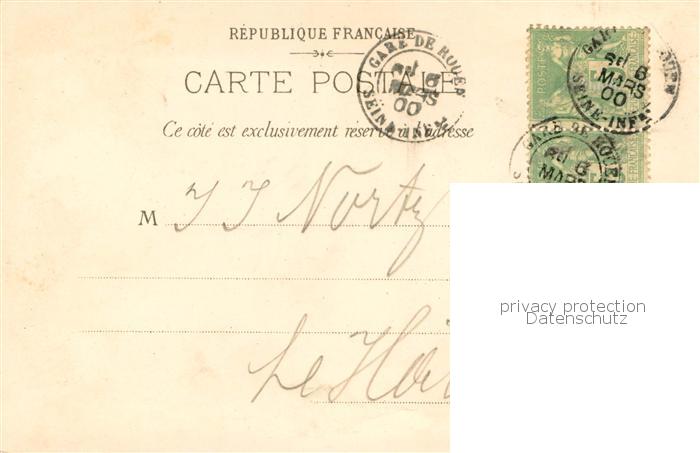 RÉPUBLIQUE FRANÇAISE
CARTE POSTALE
Ce côté est exclusivement réservé à l'adresse
GARE DE ROUEN
6
MARS
00
SEINE-INF
POSTES
GARE DE ROUEN
6
MARS
00
SEINE-INF
GARE DE ROUEN
6
MARS
M J J Nortz
privacy protection
Datenschutz
Le